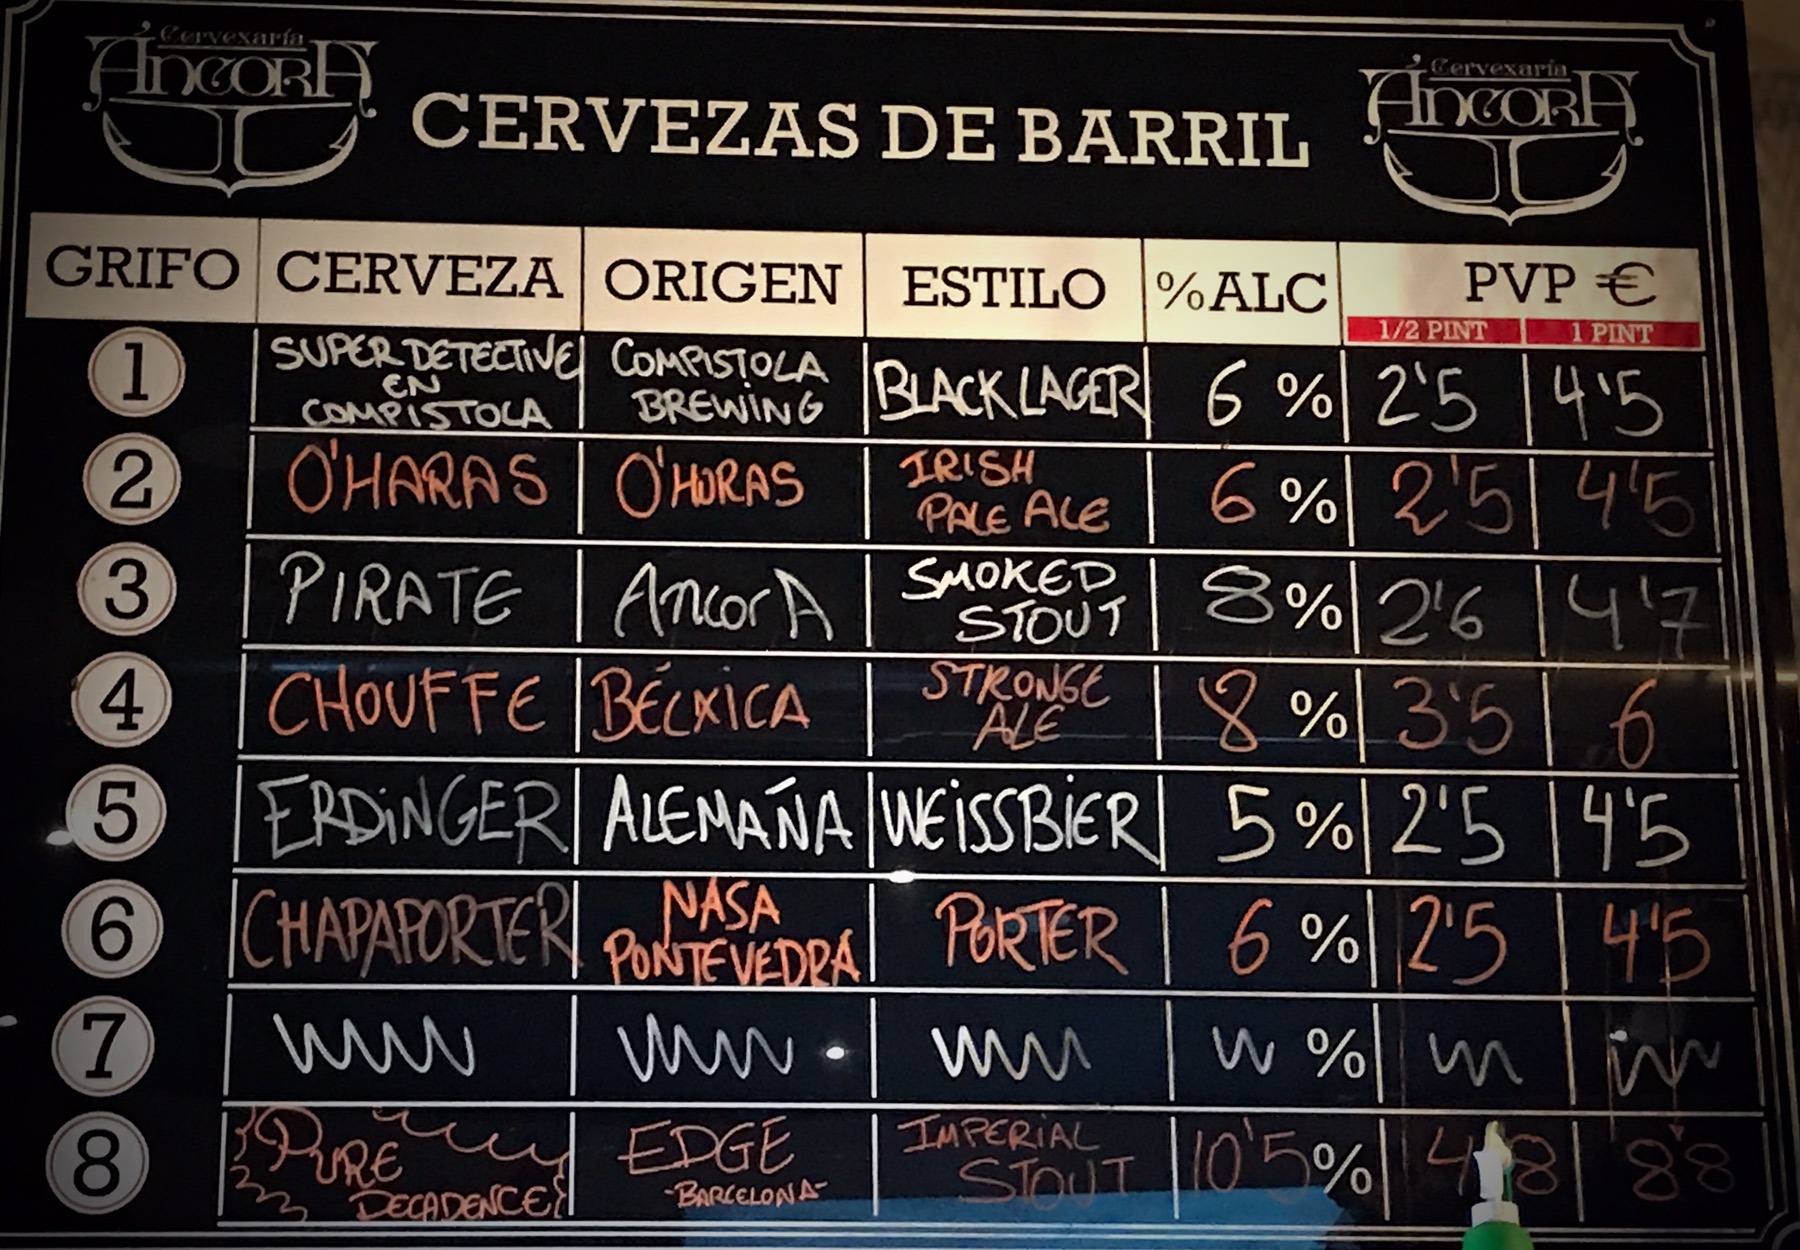 Cervexaría
ÁncorA
Cervexaría
ÁncorA
CERVEZAS DE BARRIL
GRIFO CERVEZA ORIGEN ESTILO %ALC PVP €
1/2 PINT 1 PINT
1 SUPER DETECTIVE EN COMPISTOLA COMPISTOLA BREWING BLACK LAGER 6 % 2'5 4'5
2 O'HARAS O'HORAS IRISH PALE ALE 6 % 2'5 4'5
3 PIRATE AncorA SMOKED STOUT 8 % 2'6 4'7
4 CHOUFFE BÉLXICA STRONGE ALE 8 % 3'5 6
5 ERDiNGER ALEMAÑA WEiSSBiER 5 % 2'5 4'5
6 CHAPAPORTER NASA PONTEVEDRA PORTER 6 % 2'5 4'5
7 %
8 PURE DECADENCE EDGE -BARCELONA- IMPERIAL STOUT 10'5 % 8'8